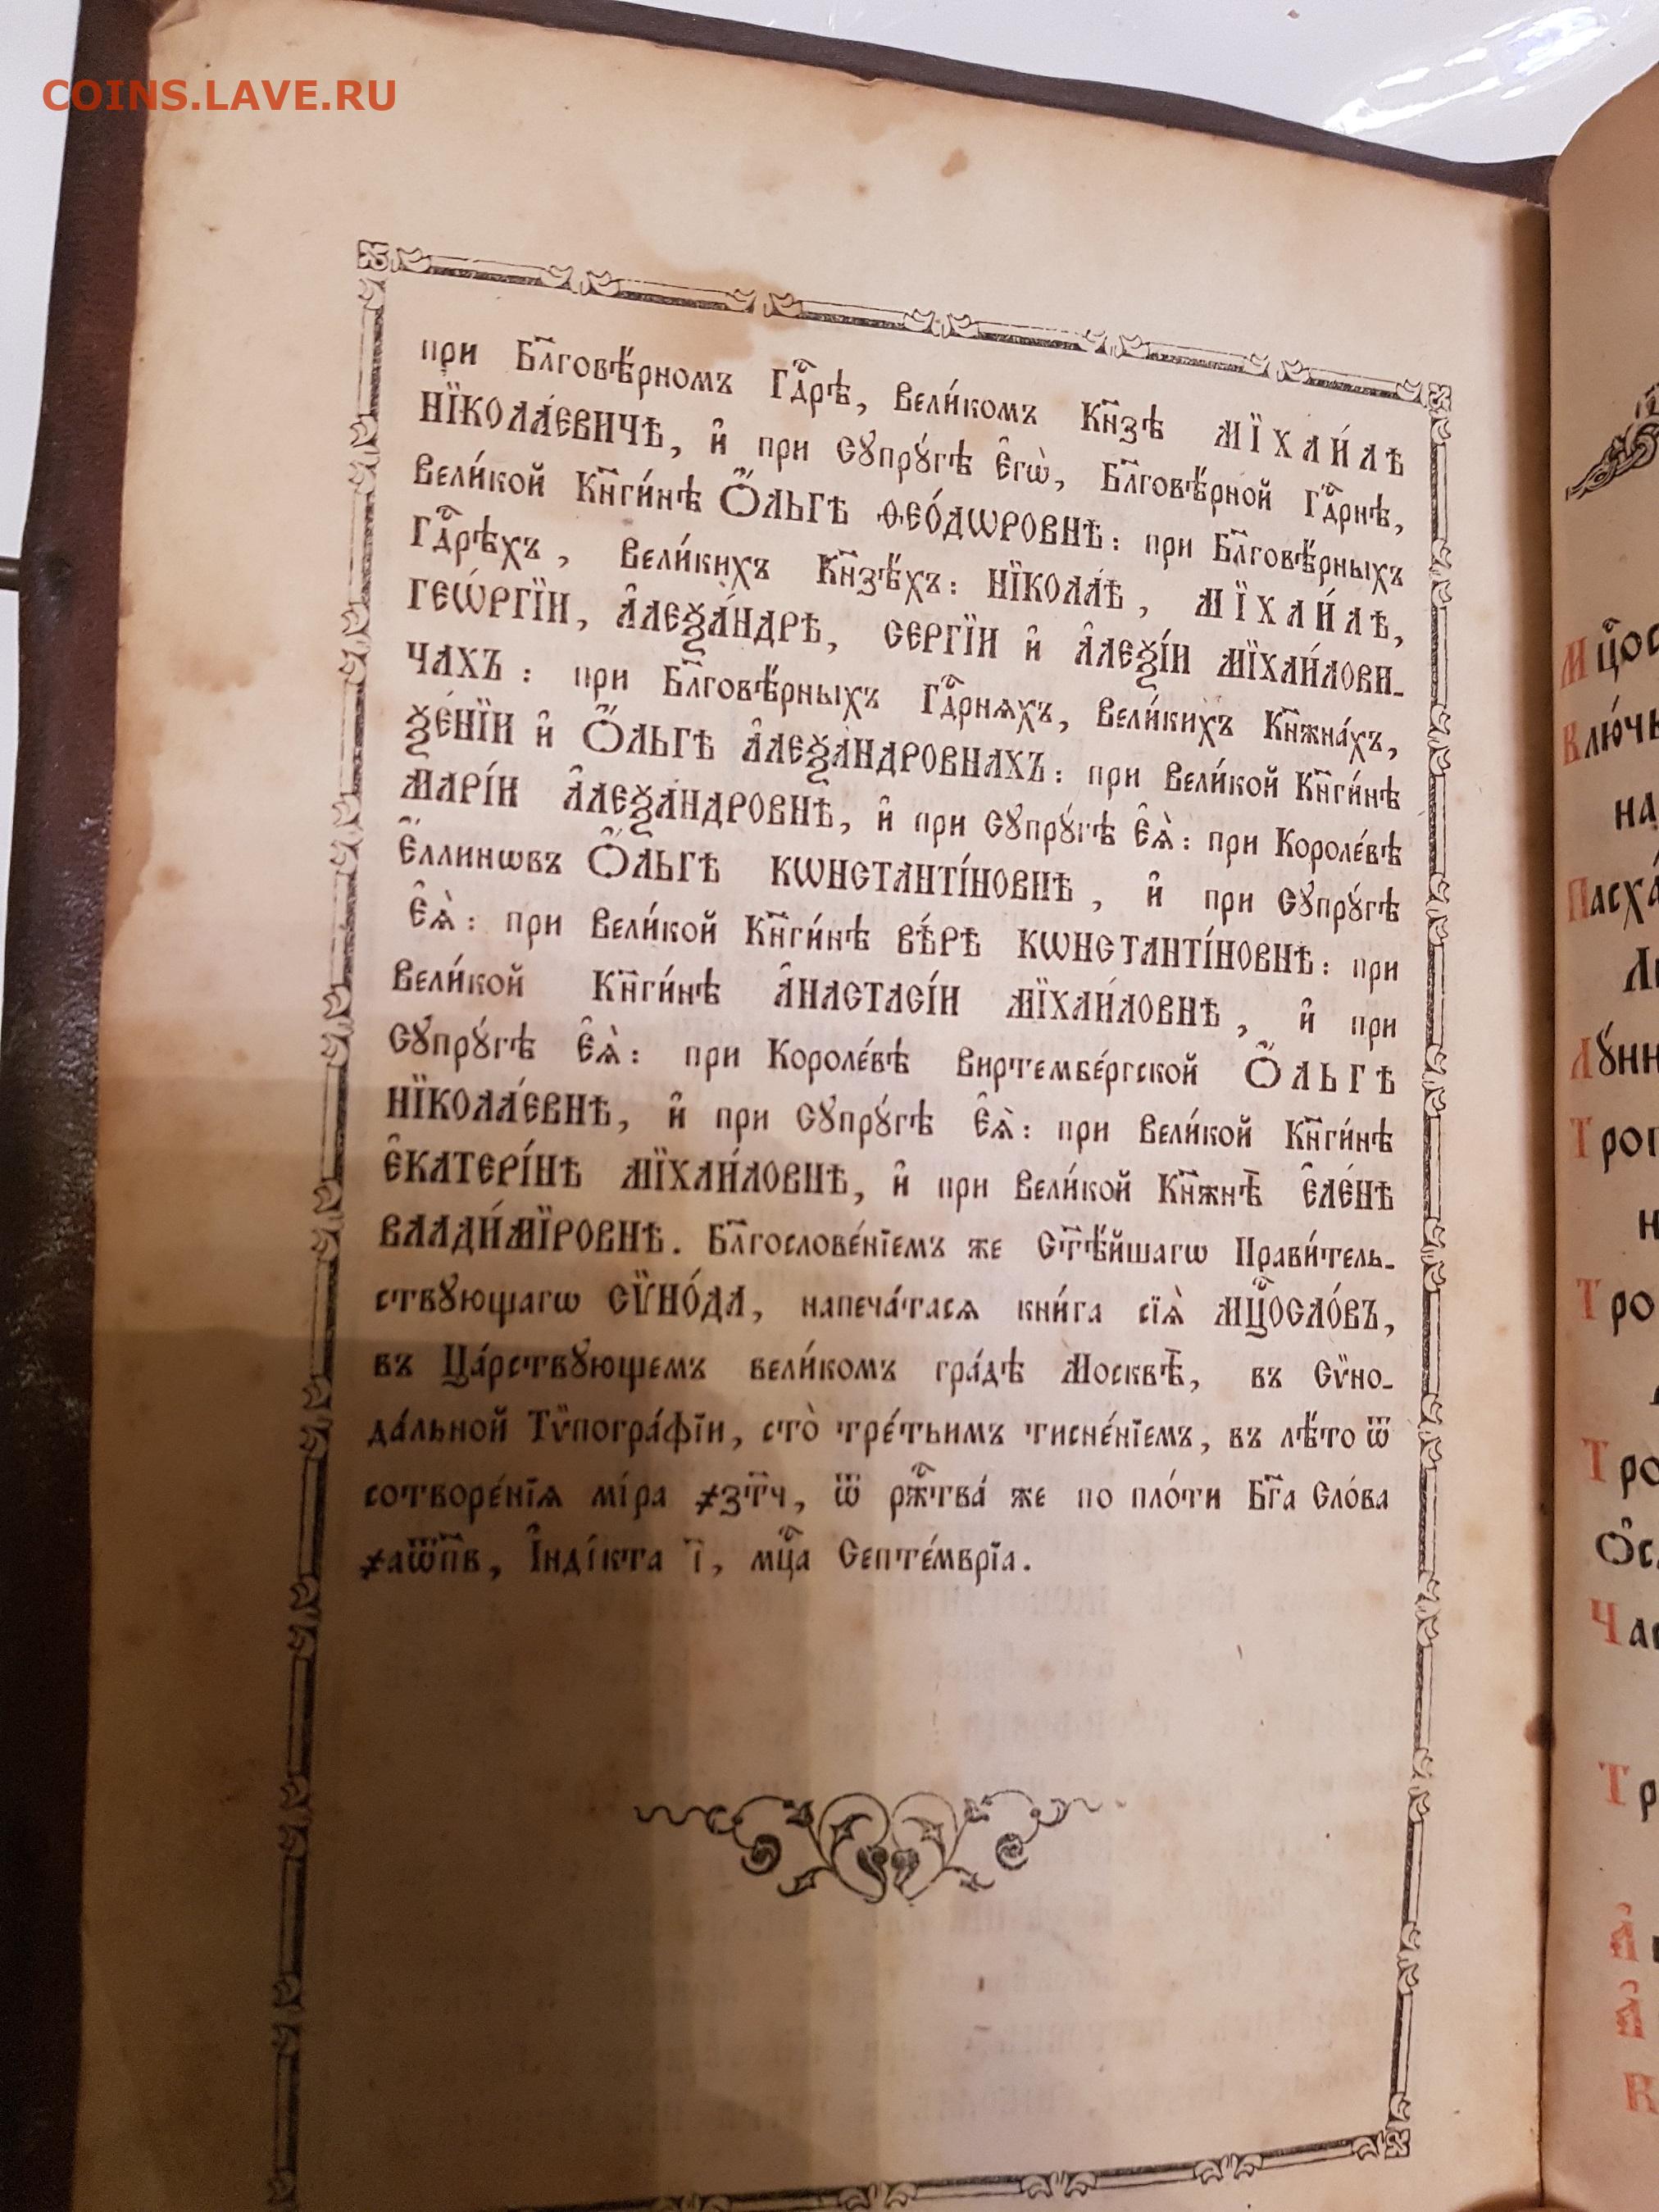 COINS.LAVE.RU
при Бл҃говѣ́рномъ Гдⷭ҇рѣ, Вели́комъ Кн҃зѣ МЇХАИ́ЛѢ
НЇКОЛА́ЕВИЧѢ, и҆ при Сꙋпрꙋ́гѣ Є҆гѡ̀, Бл҃говѣ́рной Гдⷭ҇рнѣ,
Вели́кой Кн҃ги́нѣ Ѻ҆́ЛЬГѢ ѲЕО́ДѠРОВНѢ: при Бл҃говѣ́рныхъ
Гдⷭ҇рѣхъ, Вели́кихъ Кн҃зѣ́хъ: НЇКОЛА́Ѣ, МЇХАИ́ЛѢ,
ГЕѠ́РГЇИ, А҆ЛЕѮА́НДРѢ, СЕРГЇИ и҆ А҆ЛЕѮІ́И МЇХАИ́ЛОВИ-
ЧАХЪ: при Бл҃говѣ́рныхъ Гдⷭ҇рнѧхъ, Вели́кихъ Кн҃жна́хъ,
ѮЕ́НЇИ и҆ Ѻ҆́ЛЬГѢ А҆ЛЕѮА́НДРОВНАХЪ: при Вели́кой Кн҃ги́нѣ
МАРІ́И А҆ЛЕѮА́НДРОВНѢ, и҆ при Сꙋпрꙋ́гѣ Є҆ѧ̀: при Короле́вѣ
Є҆́ллинѡвъ Ѻ҆́ЛЬГѢ КѠНСТАНТІ́НОВНѢ, и҆ при Сꙋпрꙋ́гѣ
Є҆ѧ̀: при Вели́кой Кн҃ги́нѣ ВѢ́РѢ КѠНСТАНТІ́НОВНѢ: при
Вели́кой Кн҃ги́нѣ А҆НАСТАСІ́И МЇХАИ́ЛОВНѢ, и҆ при
Сꙋпрꙋ́гѣ Є҆ѧ̀: при Короле́вѣ Виртембе́ргской Ѻ҆́ЛЬГѢ
НЇКОЛА́ЕВНѢ, и҆ при Сꙋпрꙋ́гѣ Є҆ѧ̀: при Вели́кой Кн҃ги́нѣ
Є҆КАТЕРІ́НѢ МЇХАИ́ЛОВНѢ, и҆ при Вели́кой Кн҃жнѣ̀ Є҆ЛЕ́НѢ
ВЛАДИ́МЇРОВНѢ. Бл҃гослове́нїемъ же Ст҃ѣ́йшагѡ Прави́тель-
ствꙋющагѡ СѴ̈НО́ДА, напеча́тасѧ кни́га сїѧ̀ МЦⷭ҇ОСЛО́ВЪ,
въ Ца́рствꙋющемъ вели́комъ гра́дѣ Москвѣ̀, въ Сѵ̈но-
да́льной Тѵ̈погра́фїи, сто̀ тре́тьимъ тисне́нїемъ, въ лѣ́то ѿ
сотворе́нїѧ мі́ра ҂зт҃ч, ѿ рж҇ⷭ҇тва́ же по пло́ти Бг҃а Сло́ва
҂аѿп҃в, І҆нді́кта і҃, мцⷭ҇а Септе́мврїа.
Мцⷭ҇ос
Ключь
на
Пасха́
Лꙋнн
Троп
н
Тро
Тро
Ча
Тр